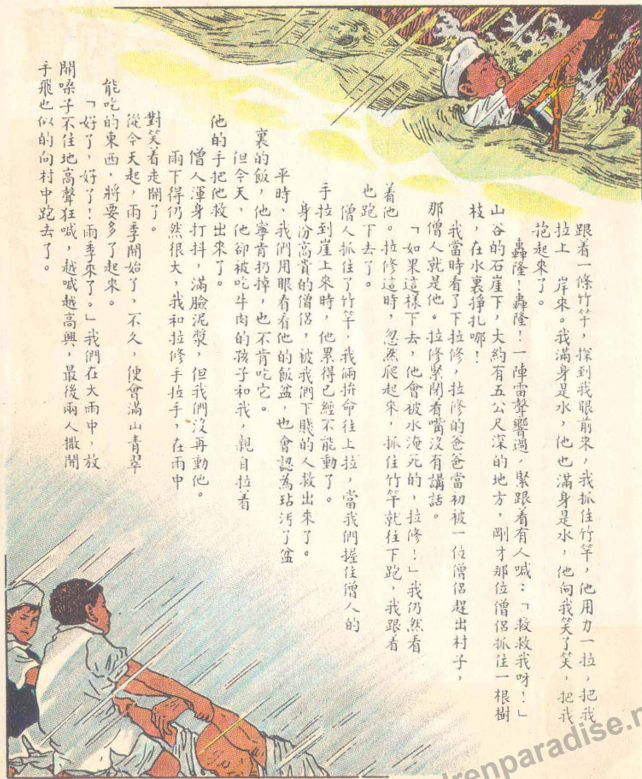 跟着一條竹竿，探到我眼前來，我抓住竹竿，他用力一拉，把我
拉上　岸來。我滿身是水，他也滿身是水，他向我笑了笑，把我
抱起來了。
轟隆！轟隆！一陣雷聲響過，緊跟着有人喊：「救救我呀！」
山谷的石崖下，大約有五公尺深的地方，剛才那位僧侶抓住一根樹
枝，在水裏掙扎哪！
我當時看了下拉修，拉修的爸爸當初被一位僧侶趕出村子，
那僧人就是他。拉修緊閉着嘴沒有講話。
「如果這樣下去，他會被水淹死的，拉修！」我仍然看
着他。拉修這時，忽然爬起來，抓住竹竿就往下跑，我跟着
也跑下去了。
僧人抓住了竹竿，我倆拚命往上拉，當我們握住僧人的
手拉到崖上來時，他累得已經不能動了。
身份高貴的僧侶，被我們下賤的人救出來了。
平時，我們用眼看看他的飯盆，也會認為玷污了盆
裏的飯，他寧肯扔掉，也不肯吃它。
但今天，他卻被吃牛肉的孩子和我，親自拉着
他的手把他救出來了。
僧人渾身打抖，滿臉泥漿，但我們沒再動他。
雨下得仍然很大，我和拉修手拉手，在雨中
對笑着走開了。
從今天起，雨季開始了，不久，便會滿山青翠
能吃的東西，將要多了起來。
「好了，好了！雨季來了。」我們在大雨中，放
開嗓子不住地高聲狂喊，越喊越高興，最後兩人撒開
手飛也似的向村中跑去了。
kenparadise.n